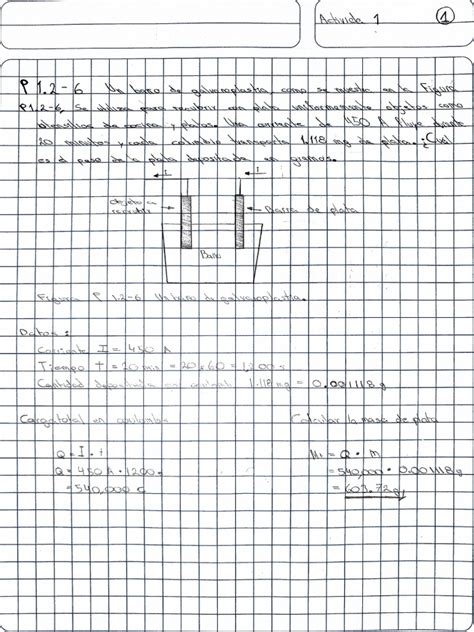 Actividad 1
1
P 1.2-6 Un baño de galvanoplastia, como se muestra en la Figura
P1.2-6, Se utiliza para recubrir con plata uniformemente objetos como
utensilios de cocina y platos. Una corriente de 450 A fluye durante
20 minutos, y cada coulombio transporta 1.118 mg de plata. ¿Cual
es el peso de la plata depositada en gramos.
i
i
objeto a
recubrir
Barra de plata
Baño
Figura P 1.2-6 Un baño de galvanoplastia.
Datos:
Corriente I = 450 A
Tiempo t = 20 min = 20 · 60 = 1200 s
Cantidad depositada 1.118 mg = 0.001118 g
Carga total en coulombs
Calcular la masa de plata
Q = I · t
Q = 450 A · 1200 s
= 540,000 C
Q · m
= 540,000 · 0.001118 g
= 603.72 g